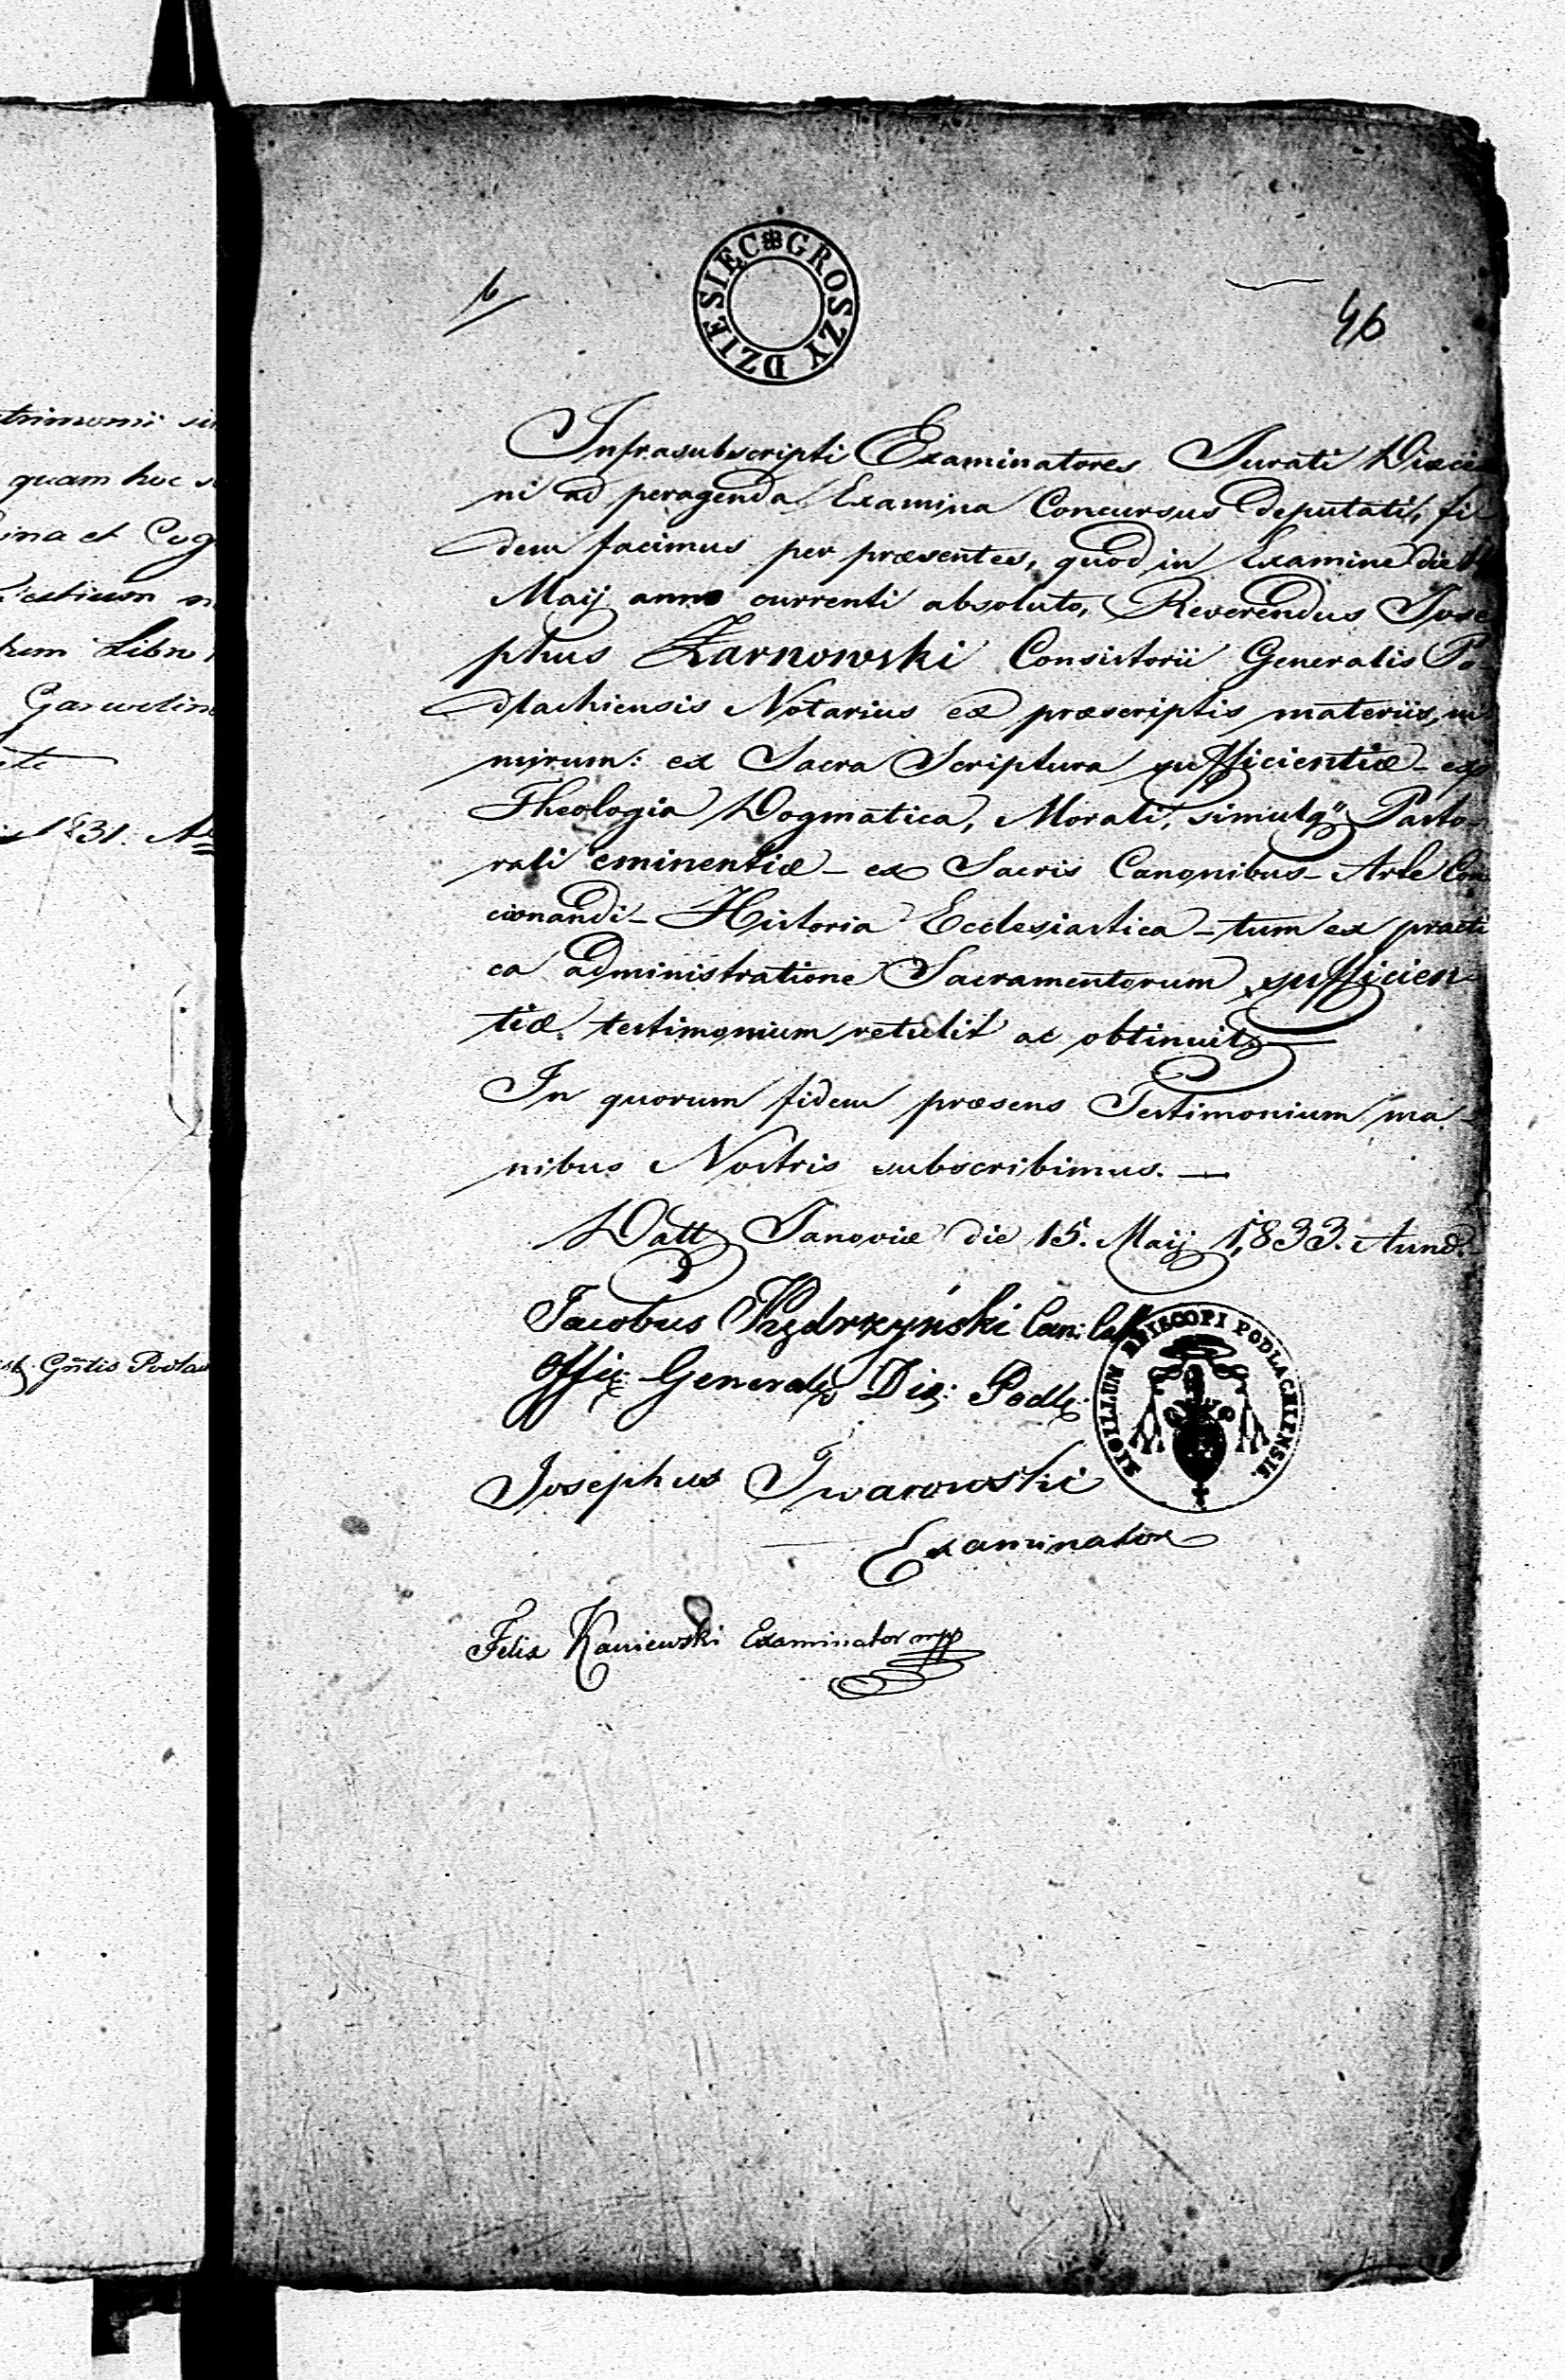 trimonii
quam hoc
ina et Cog
Libro
Garwolin
1831. No
Gnlis Podla
DZIESIĘĆ GROSZY
46
Infrasubscripti Examinatores Jurati Diœce
ni ad peragenda Examina Concursus deputati, fi
dem facimus per præsentes, quod in Examine die
Maij anno currenti absoluto, Reverendus Jose
phus Żarnowski Consistorii Generalis Po-
dlachiensis Notarius ex præscriptis materiis, ni
mirum: ex Sacra Scriptura sufficientiæ – ex
Theologia Dogmatica, Morali, simulq" Pasto-
rali eminentiæ – ex Sacris Canonibus – Arte Con
cionandi – Historia Ecclesiastica – tum ex practi
ca administratione Sacramentorum sufficien-
tiæ testimonium retulit ac obtinuit.
In quorum fidem præsens Testimonium ma-
nibus Nostris subscribimus. —
Datt Janoviæ die 15. Maij 1,833. Annd.
Jacobus Kędrzyński Can: Cath
Offic: Generalis Diæ: Podl:
SIGILLUM EPISCOPI PODLACHIENSIS.
Josephus Twarowski
Examinator
Felix Kaniewski Examinator mpp